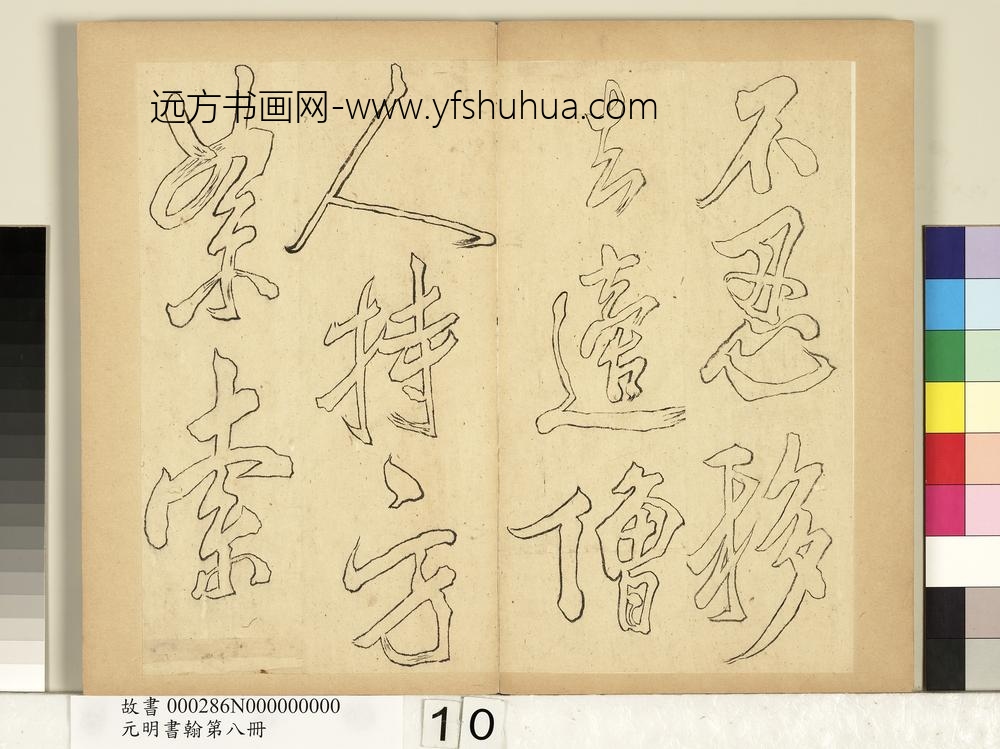 远方书画网-www.yfshuhua.com
不忍移
去適僧
人持方
索
故書 000286N000000000
元明書翰第八冊
10